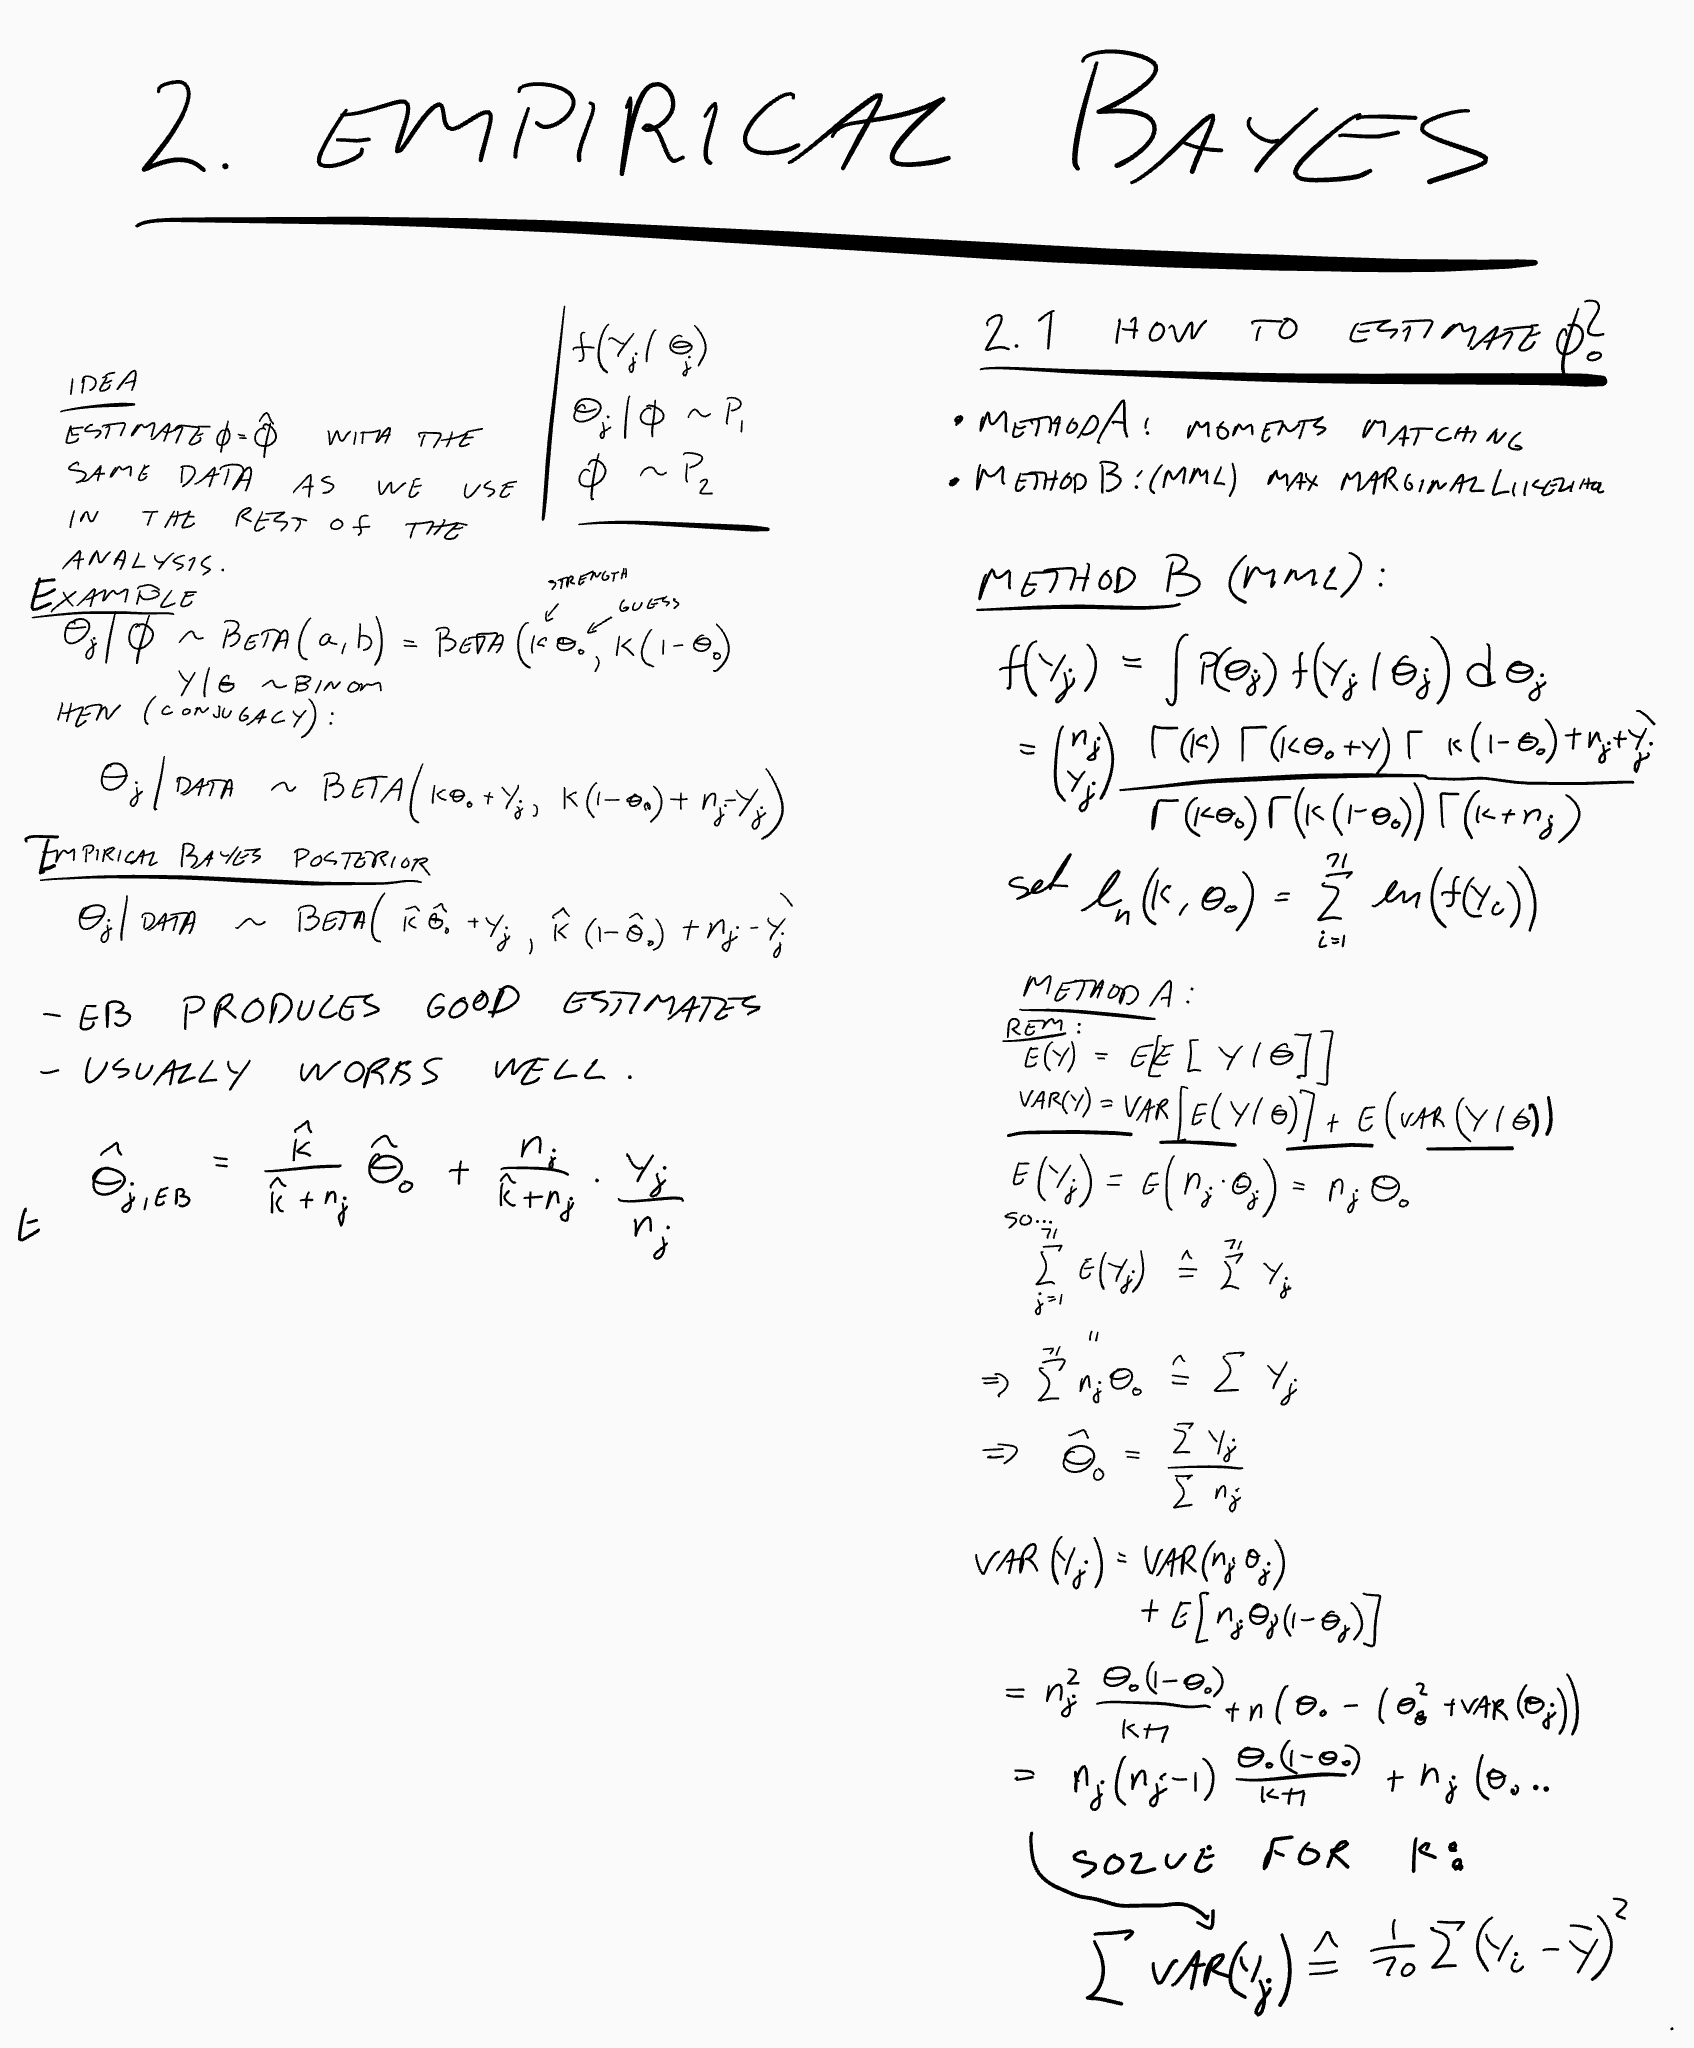 2. EMPIRICAL BAYES
IDEA
ESTIMATE ϕ=ϕ̂ WITH THE
SAME DATA AS WE USE
IN THE REST OF THE
ANALYSIS.
f(Yj|θj)
θj|ϕ ~ P1
ϕ ~ P2
EXAMPLE
STRENGTH
GUESS
θj|ϕ ~ BETA(a,b) = BETA(Kθ0, K(1-θ0))
Y|θ ~ BINOM
HEN (CONJUGACY):
θj|DATA ~ BETA(Kθ0+Yj, K(1-θ0)+nj-Yj)
EMPIRICAL BAYES POSTERIOR
θj|DATA ~ BETA(K̂θ̂0+Yj, K̂(1-θ̂0)+nj-Yj)
- EB PRODUCES GOOD ESTIMATES
- USUALLY WORKS WELL.
θ̂j,EB = K̂/(K̂+nj) θ̂0 + nj/(K̂+nj) · Yj/nj
E
2.1 HOW TO ESTIMATE ϕ0?
• METHOD A: MOMENTS MATCHING
• METHOD B: (MML) MAX MARGINAL LIKELIHO
METHOD B (MML):
f(Yj) = ∫ P(θj) f(Yj|θj) dθj
= (nj Yj) Γ(K) Γ(Kθ0+Y) Γ K(1-θ0)+nj+Yj) / Γ(Kθ0) Γ(K(1-θ0)) Γ(K+nj)
set ln(K, θ0) = Σ i=1 71 ln(f(Yi))
METHOD A:
REM:
E(Y) = E[E[Y|θ]]
VAR(Y) = VAR[E(Y|θ)] + E(VAR(Y|θ))
E(Yj) = E(nj·θj) = nj θ0
SO...
Σ j=1 71 E(Yj) ≙ Σ 71 Yj
"
⇒ Σ 71 njθ0 ≙ Σ Yj
⇒ θ̂0 = Σ Yj / Σ nj
VAR(Yj) = VAR(nj θj)
+ E[njθj(1-θj)]
= nj² θ0(1-θ0)/(K+1) + n(θ0 - (θ0² + VAR(θj))
= nj(nj-1) θ0(1-θ0)/(K+1) + nj(θ0..
SOLVE FOR K:
Σ VAR(Yj) ≙ 1/70 Σ(Yi - Ȳ)²